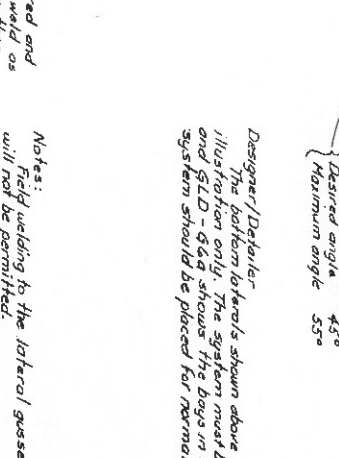 Desired angle 45°
Maximum angle 55°
Designer/Detailer
The bottom laterals shown above
illustration only. The system must
and GLD-6&9 shows the bays in
system should be placed for
Notes:
Field welding to the lateral
will not be permitted.
ed and
weld as